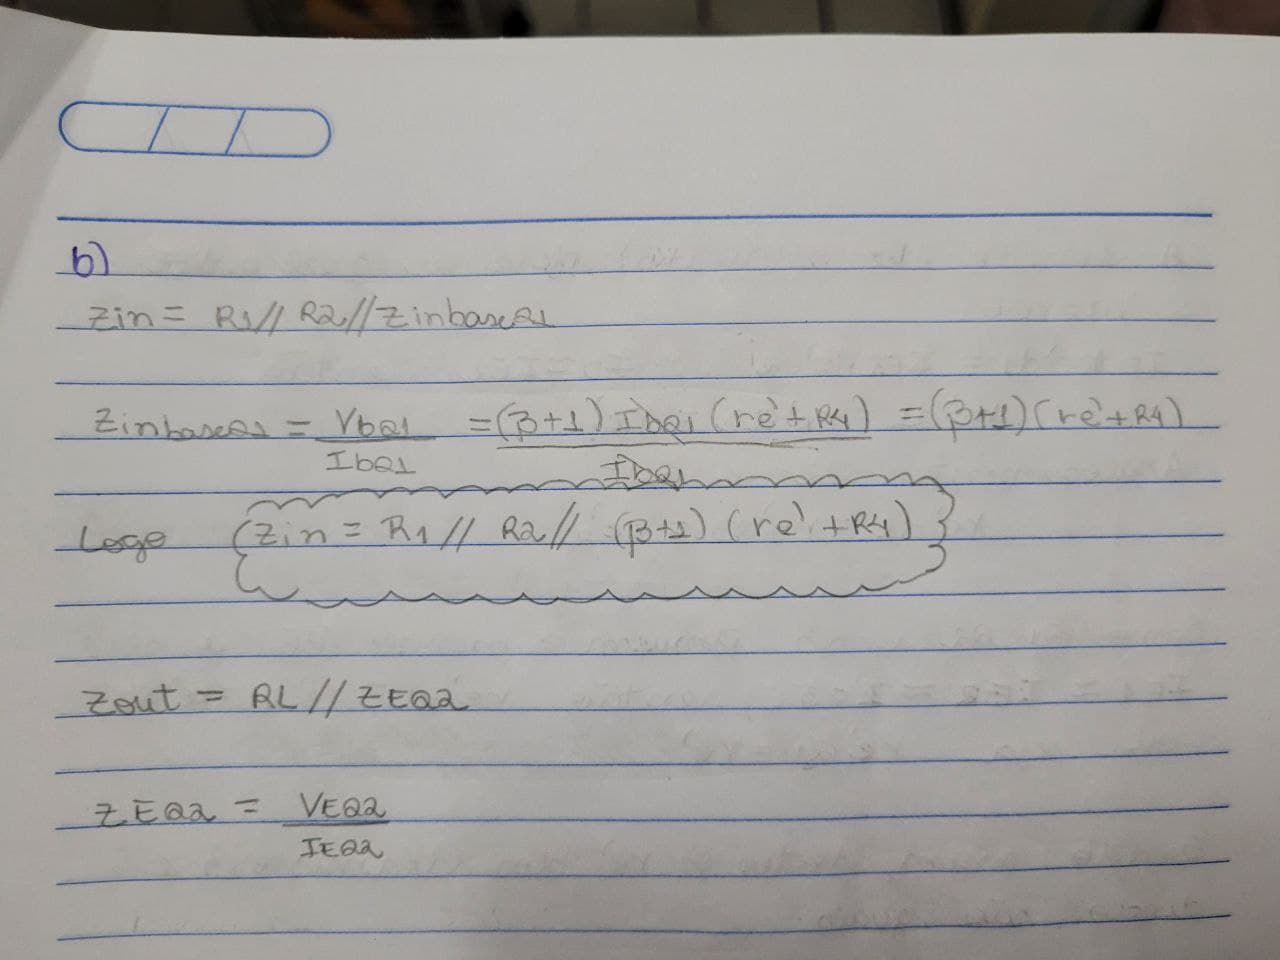 b)
Zin = R1 // R2 // ZinbaseQ1
ZinbaseQ1 = VbQ1 / IbQ1 = (β+1) IbQ1 (re' + R4) / IbQ1 = (β+1)(re' + R4)
Logo Zin = R1 // R2 // (β+1) (re' + R4)
Zout = RL // ZEQ2
ZEQ2 = VEQ2 / IEQ2